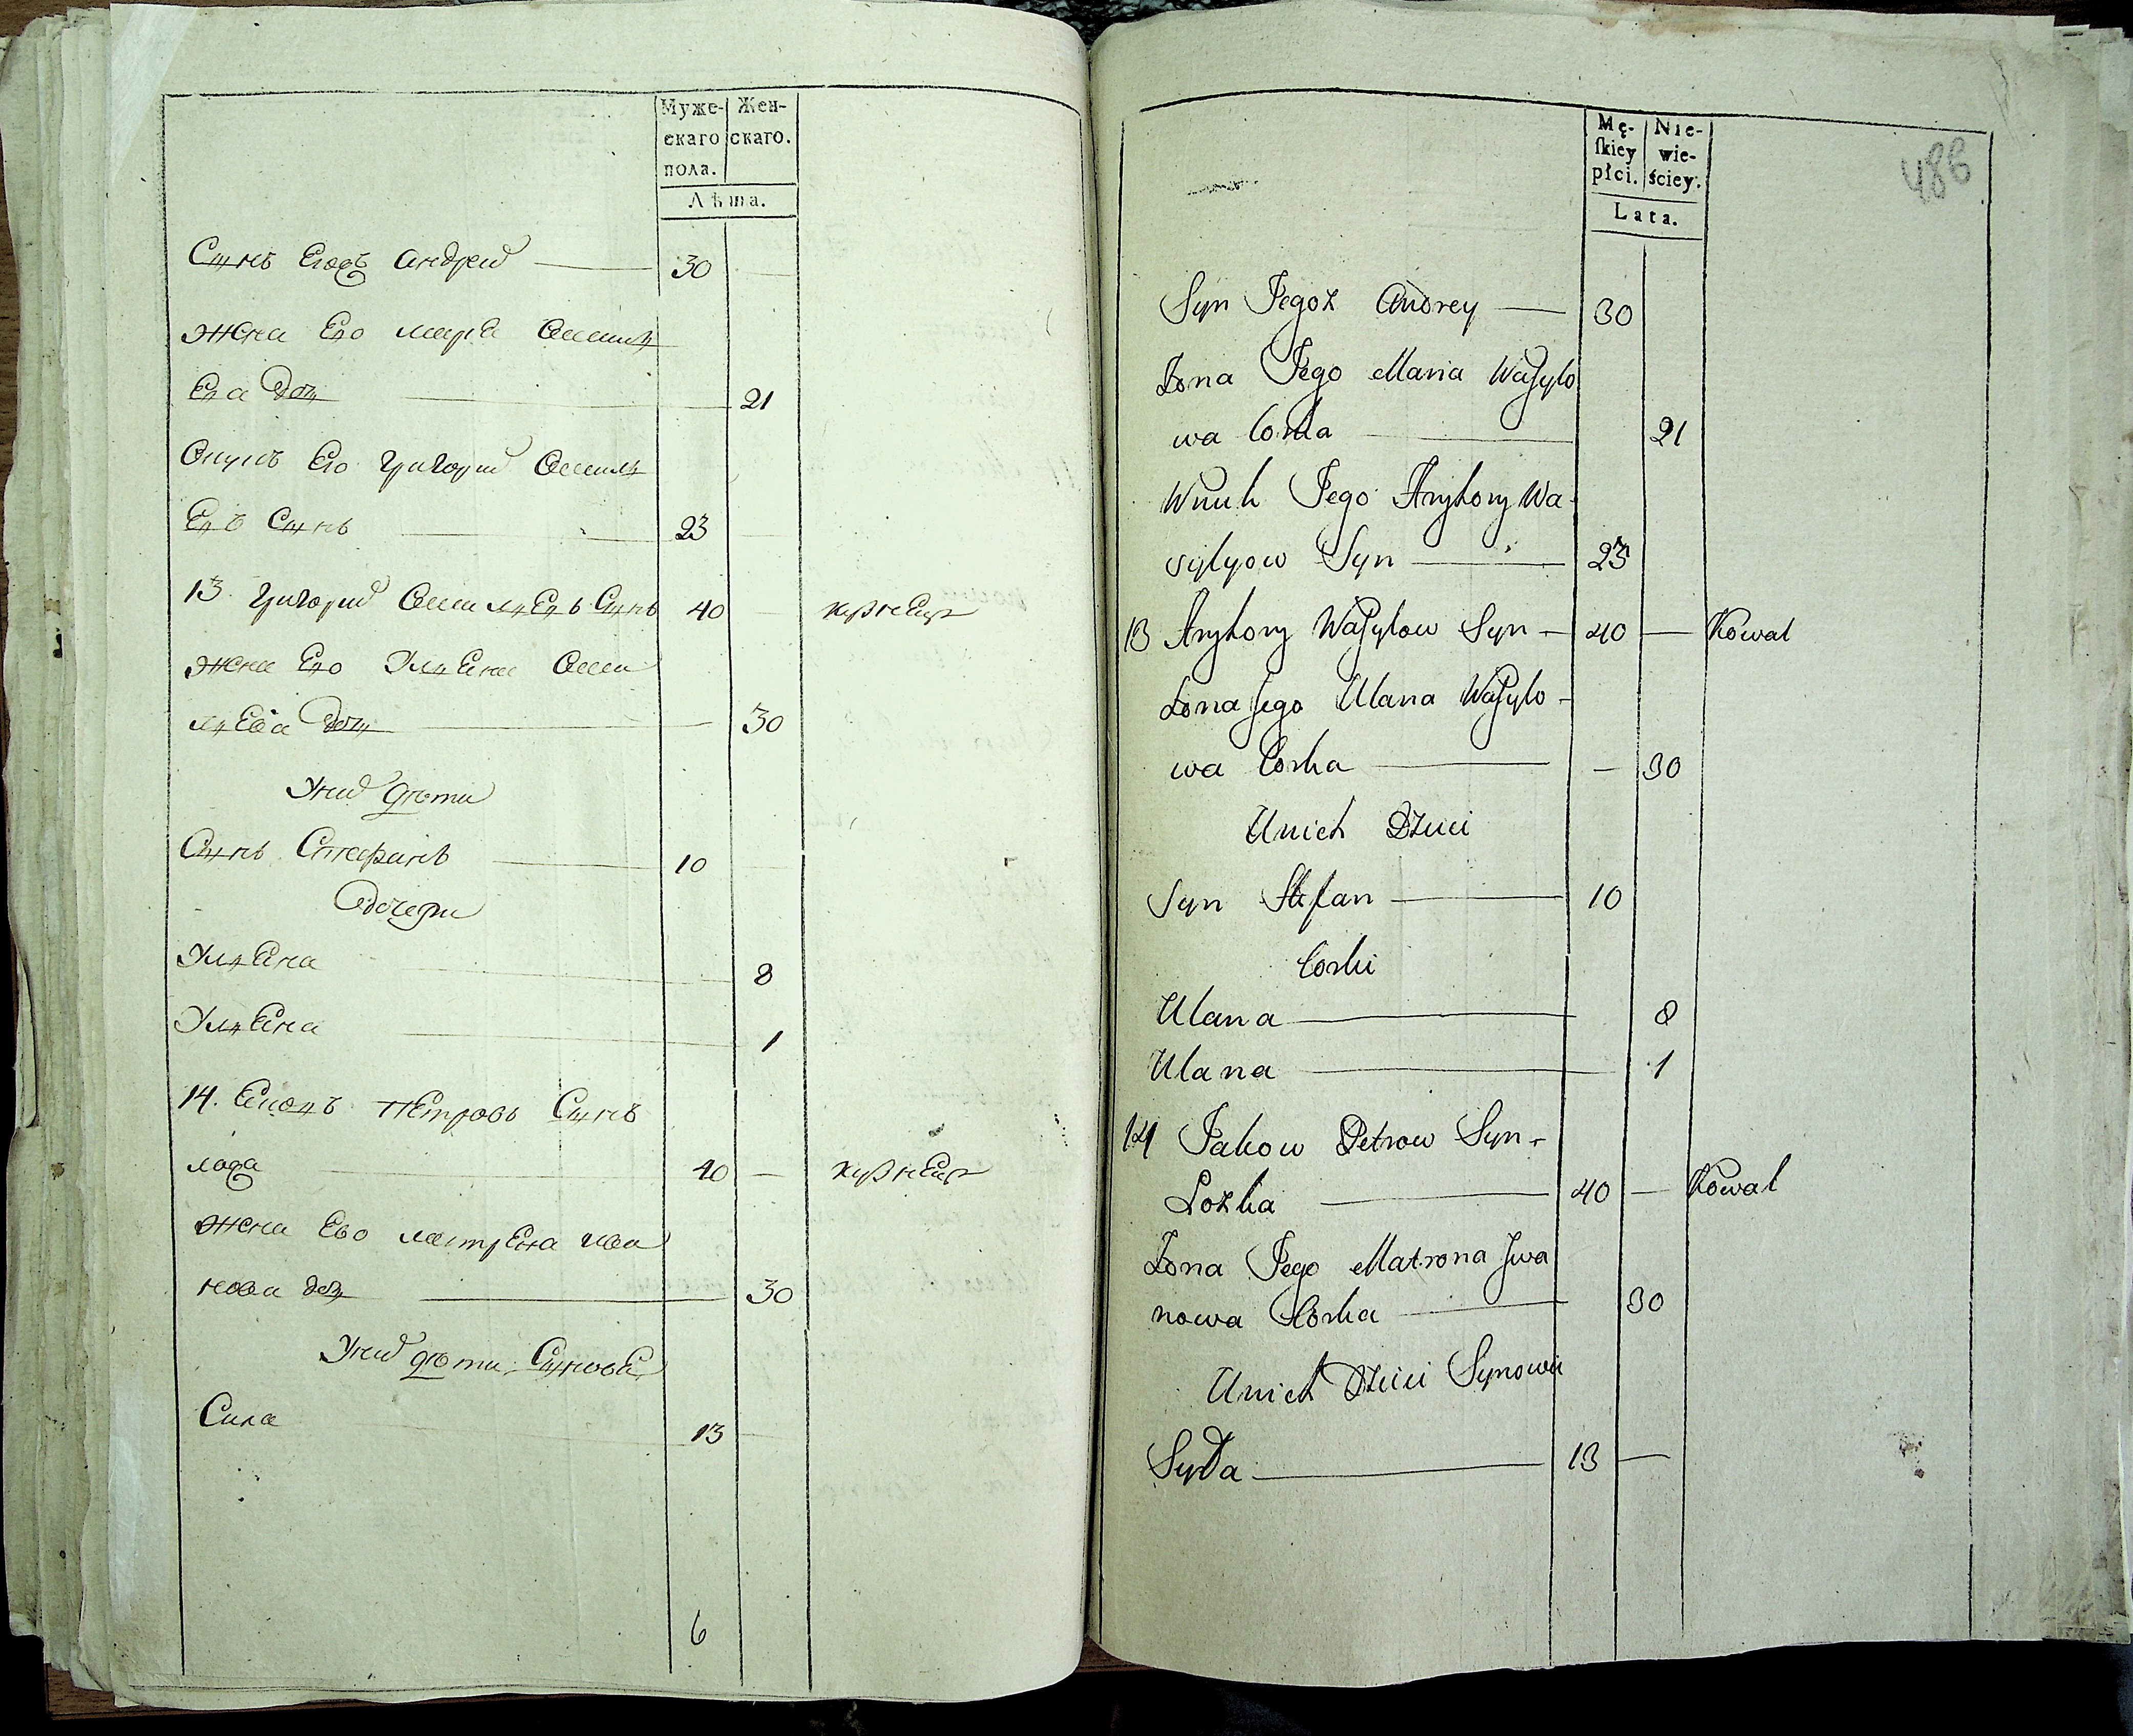 Муже-
скаго
пола.
Жен-
скаго.
Лѣта.
Сынъ Егожъ Андрей 30
жена Его марья Васили
Ева Дочь 21
Внукъ Его Григорий Васили
Евъ Сынъ 23
13. Григорий Василье въ Сынъ 40 кузнецъ
жена Его Ульяна Васи
льева Дочь 30
Уних дѣти
Сынъ Стефанъ 10
Дочери
Ульяна 8
Ульяна 1
14. Яковъ Петровъ Сынъ
40 кузнецъ
жена Ево матрена ива
нова дочь 30
Уних дѣти Сыновья
Сила 13
6
Mę-
skiey
płci.
Nie-
wie-
ściey.
Lata.
486
Syn Jegoż Andrey 30
Żona Jego Maria Wasylo
wa Corka 21
Wnuk Jego Hryhory Wa-
sylyow Syn 23
13 Hryhory Wasylow Syn 40 Kowal
Żona Jego Ulana Wasylo-
wa Corka 30
Unich Dzieci
Syn Stefan 10
Corki
Ulana 8
Ulana 1
14 Jakow Petrow Syn
Łozka 40 Kowal
Żona Jego Matrona Jwa
nowa Corka 30
Unich Dzieci Synowie
Syła 13